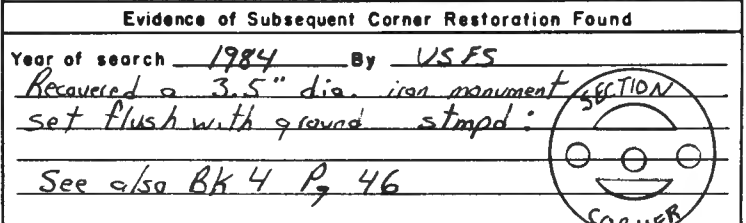 Evidence of Subsequent Corner Restoration Found
Year of search 1984 By USFS
Recovered a 3.5" dia. iron monument
set flush with ground stmpd:
SECTION
See also BK 4 Pg 46
CORNER